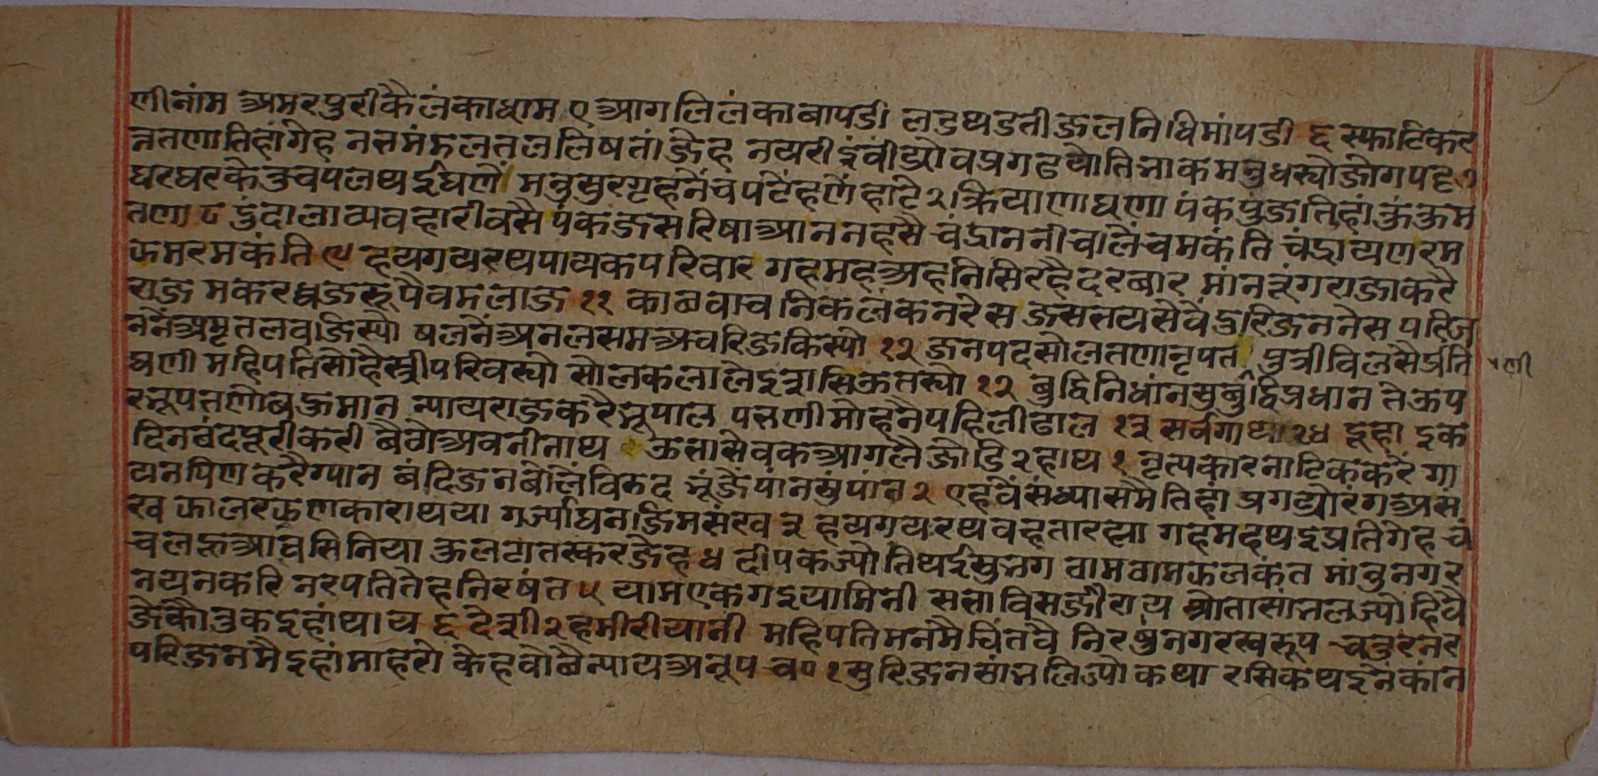 णीनांम अमरपुरीकैलंकाधाम ए आगलिलंकाबापडी लडथडतीजलनिधिमांपडी ६ स्फाटिकर
त्नतणातिहांगेह नत्तमंमलतललिषतांजेह नयरीइंवींट्योवप्रगढथ्योतिन्नाकमनुधस्योजोगपट्ट ७
घरघरकेतुचपलथईघणैं मनुसुरगृहनैंचपटेंहणैं हाटे२क्रियाणाघणा पंकपुंजतिहांकुंकुम
तणा ८ डुंदालाव्यवहारीवसै पंकजसरिषाआननहसै चंद्राननीचालैचमकंति चंद्रायणरम
ऊमरमकंति ९ हयगयरथपायकपरिवार गहमहअहनिसिरहैदरबार मांनतूंगराजाकरै
राज मकरध्वजरूपैवमलाज ११ काछवाचनिकलंकनरेस जससत्यसेवैंडुरिजननेस परिज
ननैंअमृतलवजिस्यो षलनैंअनलसमअचरिजकिस्यो १२ जनपदसोलतणानृपतं पुत्रीविलसैप्रति
घणी महिपतिसोहैस्त्रीपरिवस्यो सोलकलालेइशसिऊतस्यो १२ बुद्धिनिधांनसुबुद्धिप्रधान तेऊप
रनूपत्तणोबऊमान न्यायराजकरैनूपाल पत्तणीमोहनैपहिलीढाल १३ सर्वगाथा२४ दूहा इक
दिनबंदपूरीकरी बैगेअवनीनाथ ऊत्तासेवकआगलै जोडि२हाथ १ नृत्यकारनाटिककरै गा
यनपिणकरैग्यान बंदिजनबेलिंविरुद मूंजैपांनसुंपांन २ एहवैंसंध्यासमैतिहां प्रगट्योरंगअस
रव फालरफणकाराथया गर्ज्योघनजिमसंरव ३ हयगयरथवहतारह्या गहमहथइप्रतिगेह चं
चलफआघसिनिया कुलटातस्करजेह ४ दीपकज्योतिथईसुनग वामवामफलकंत मांनुनगर
नयनकरि नरपतितेहनिरषंत ५ यामएकगइयामिनी सत्ताविसर्जीराय श्रोतासांनलज्योहिवै
जेकौतुकइहांथाय ६ देशी२हमीरीयानी महिपतिमनमैचिंतवै निरषुंनगरस्वरूप चतुरनर
परिजनमैइहांमाहरो केहवोछैन्यायअनूप च० १ सुरिजनसांनलिज्यो कथा रसिकथइनेकांन